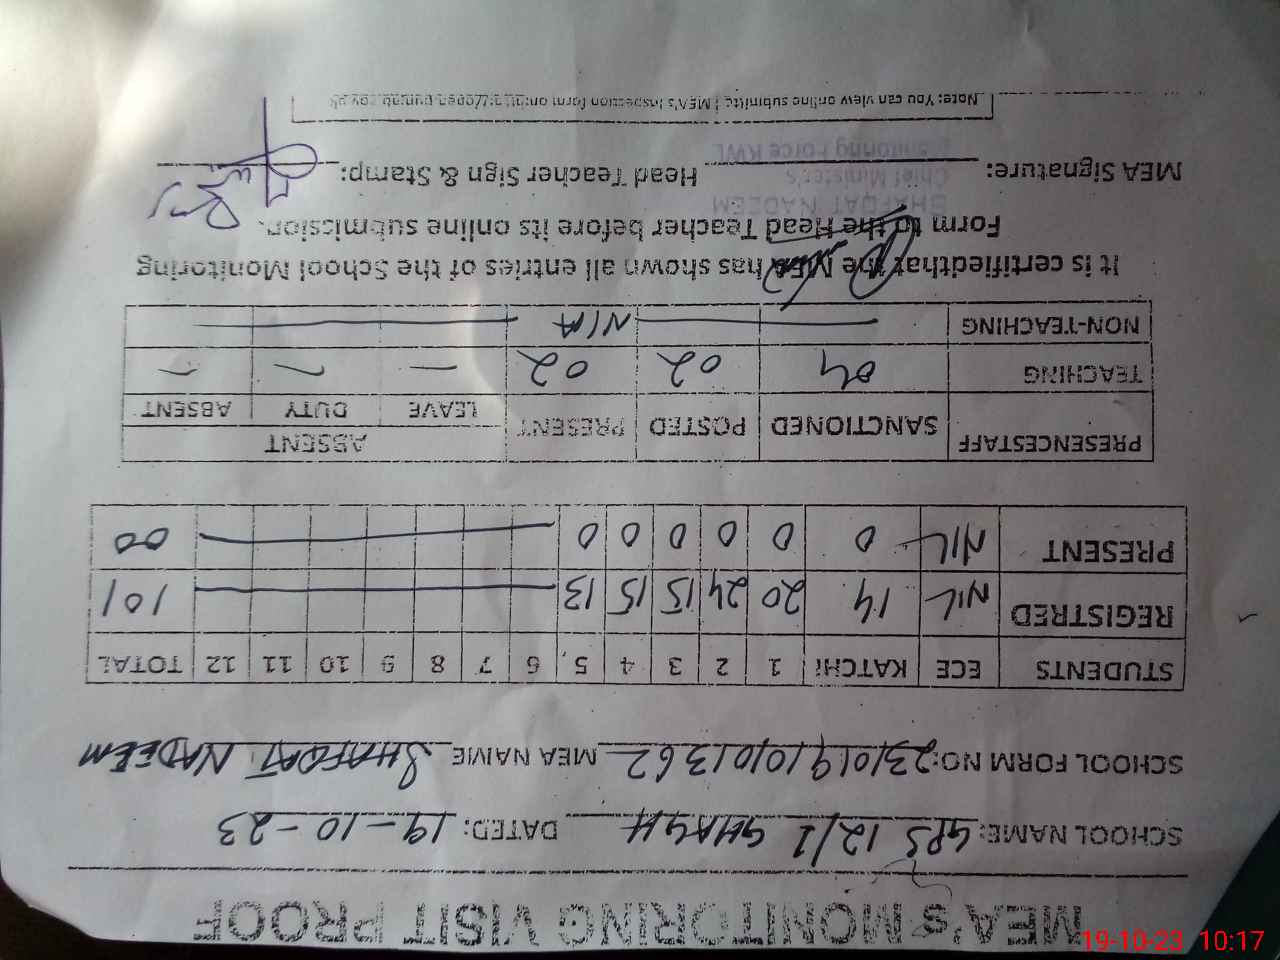 MEA's MONITORING VISIT PROOF
SCHOOL NAME: GPS 12/1 GHAGH DATED: 19-10-23
SCHOOL FORM NO: 23101910101362 MEA NAME SHAFQAT NADEEM
STUDENTS ECE KATCHI 1 2 3 4 5 6 7 8 9 10 11 12 TOTAL
REGISTRED NIL 14 20 24 15 15 13 101
PRESENT NIL 0 0 0 0 0 0 00
PRESENCESTAFF SANCTIONED POSTED PRESENT ABSENT
LEAVE DUTY ABSENT
TEACHING 04 02 02 — — —
NON-TEACHING N/A
It is certifiedthat the MEA has shown all entries of the School Monitoring
Form to the Head Teacher before its online submission.
SHAFQAT NADEEM
Chief Minister's
Monitoring Force KWL
MEA Signature: Head Teacher Sign & Stamp:
Note: You can view online submitted MEA's Inspection form on
19-10-23 10:17